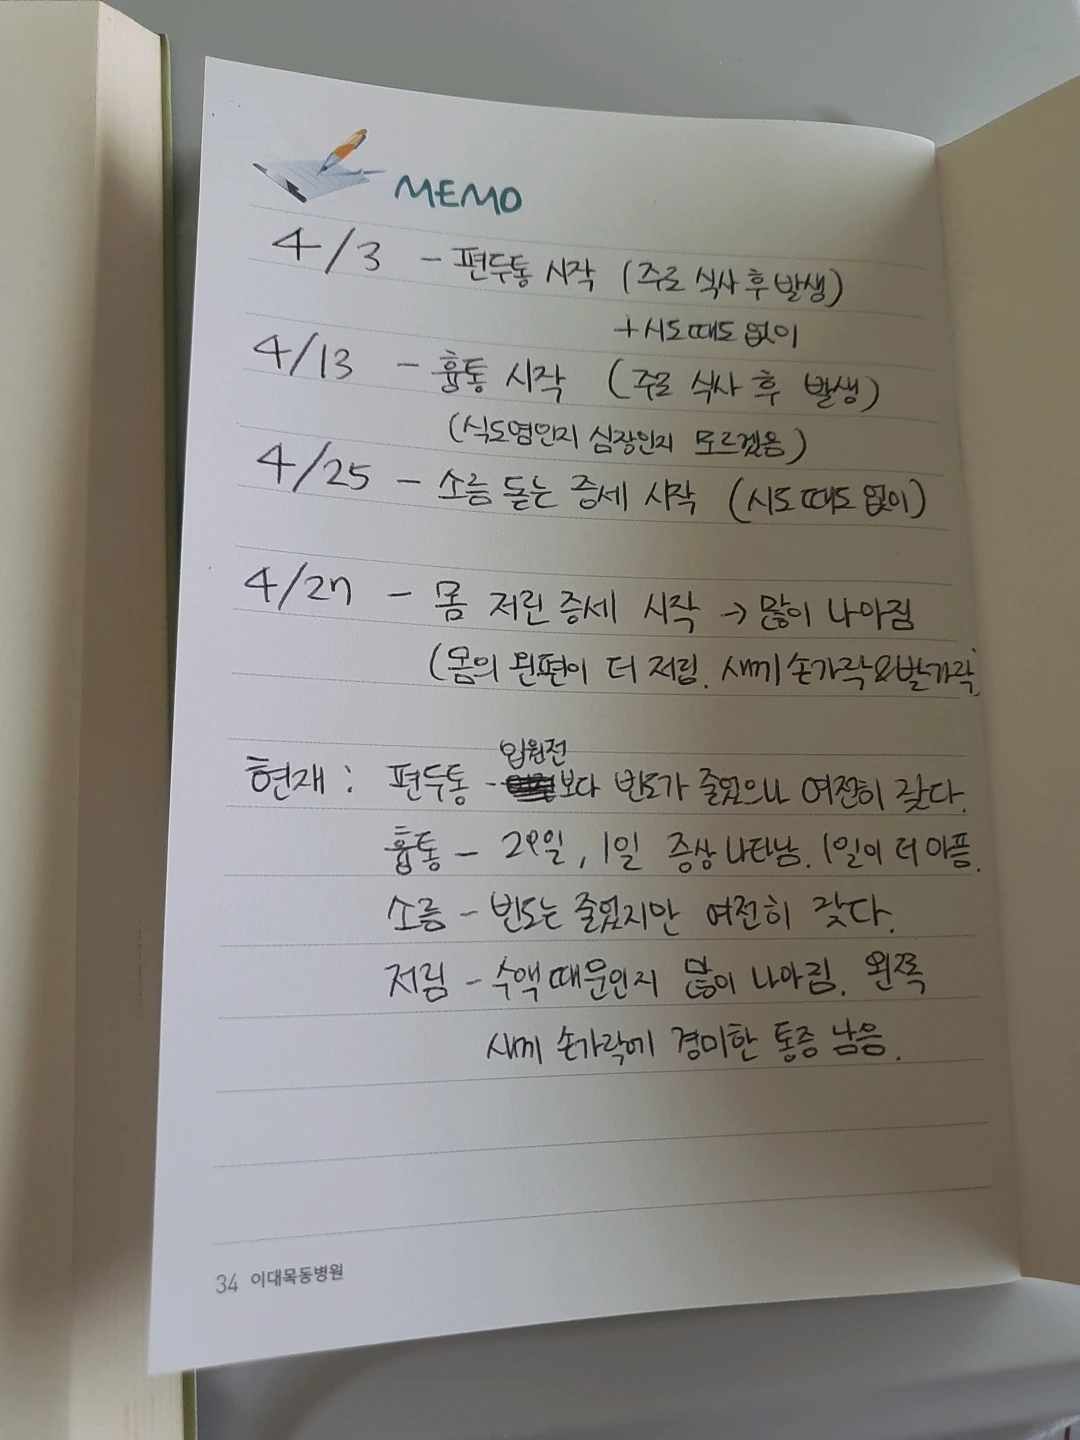 MEMO
4/3 - 편두통 시작 (주로 식사 후 발생)
+시도때도 없이
4/13 - 흉통 시작 (주로 식사 후 발생)
(식도염인지 심장인지 모르겠음)
4/25 - 소름 돋는 증세 시작 (시도 때도 없이)
4/27 - 몸 저린 증세 시작 → 많이 나아짐
(몸의 왼편이 더 저림. 새끼 손가락&발가락)
입원전
현재 : 편두통 - 보다 빈도가 줄었으나 여전히 잦다.
흉통 - 29일, 1일 증상 나타남. 1일이 더 아픔.
소름 - 빈도는 줄었지만 여전히 잦다.
저림 - 수액 때문인지 많이 나아짐. 왼쪽
새끼 손가락에 경미한 통증 남음.
34 이대목동병원